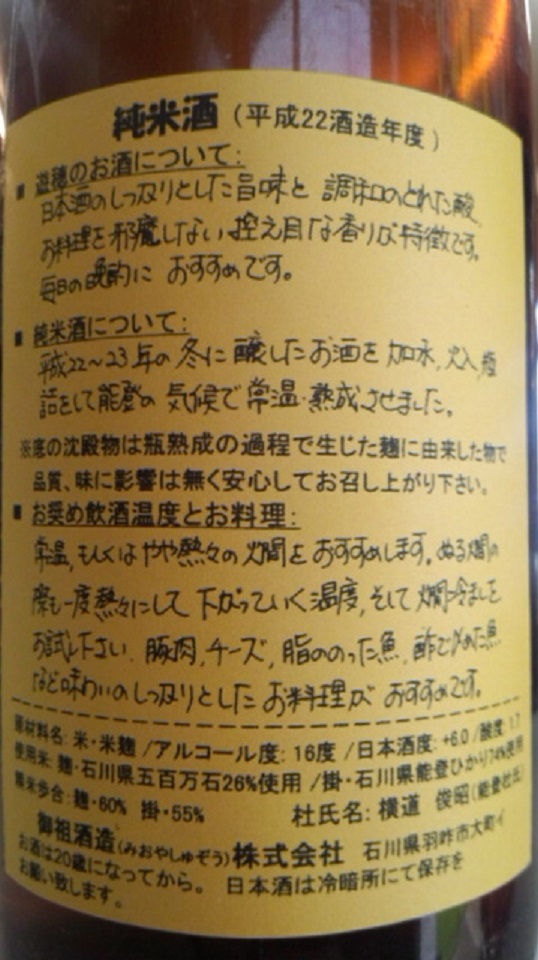 純米酒(平成22酒造年度)
■ 遊穂のお酒について:
日本酒のしっかりとした旨味と 調和のとれた酸、
お料理を邪魔しない控え目な香りが特徴です。
毎日の晩酌に おすすめです。
■ 純米酒について:
平成22〜23年の冬に醸したお酒を加水,火入,瓶
詰をして能登の気候で常温・熟成させました。
※底の沈殿物は瓶熟成の過程で生じた麹に由来した物で
品質、味に影響は無く安心してお召し上がり下さい。
■ お奨め飲酒温度とお料理:
常温,もしくはやや熱々の燗をおすすめします。ぬる燗の
際も一度熱々にして下がっていく温度,そして燗冷ましを
お試し下さい 豚肉,チーズ,脂ののった魚,酢でしめた魚
など味わいのしっかりとしたお料理がおすすめです。
原材料名:米・米麹/アルコール度:16度/日本酒度:+6.0/酸度:1.7
使用米:麹・石川県五百万石26%使用/掛・石川県能登ひかり74%使用
精米歩合:麹・60% 掛・55% 杜氏名:横道 俊昭(能登杜氏)
御祖酒造(みおやしゅぞう)株式会社 石川県羽咋市大町イ
お酒は20歳になってから。 日本酒は冷暗所にて保存を
お願い致します。